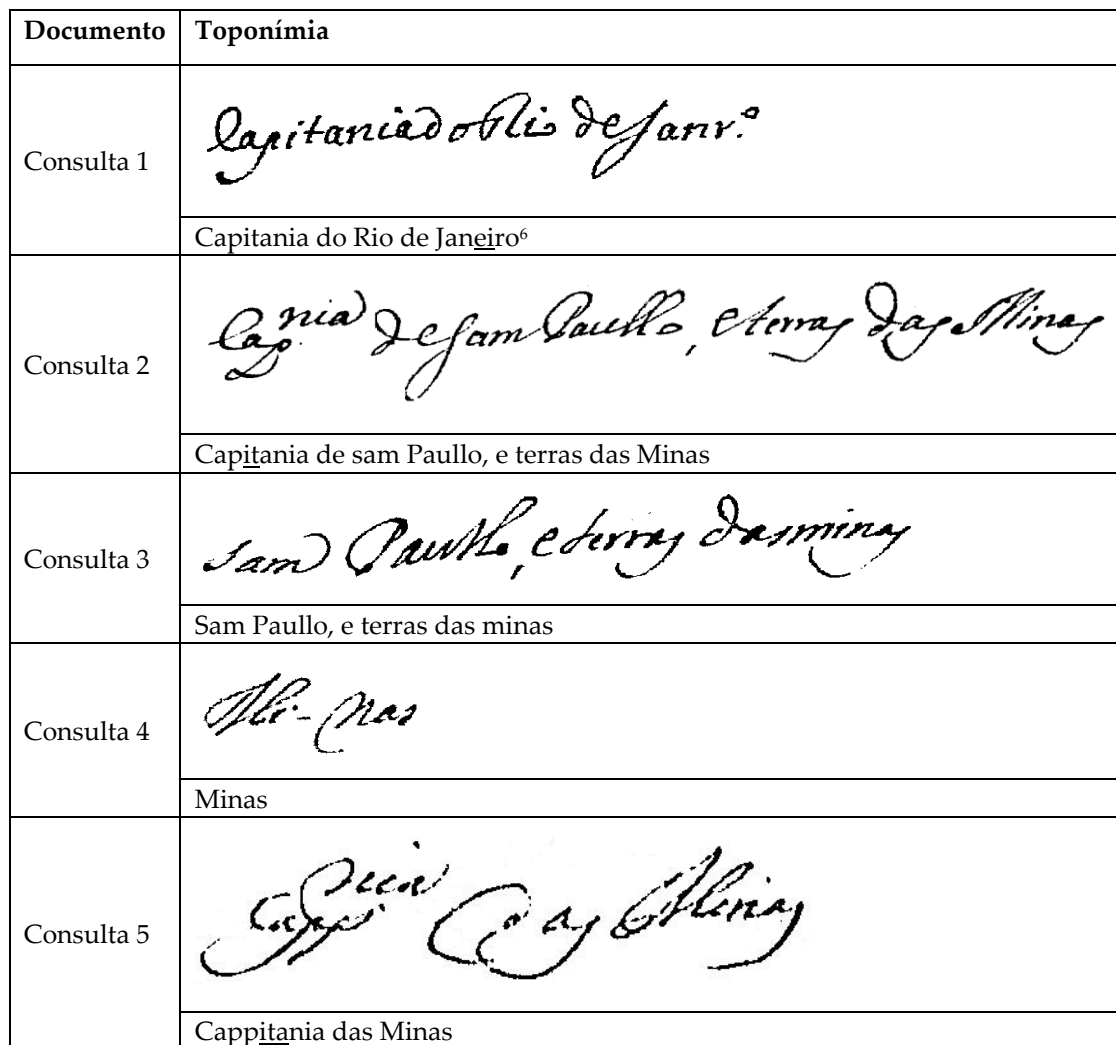 Documento Toponímia
Consulta 1
Capitania do Rio de Janr.º
Capitania do Rio de Janeiro⁶
Consulta 2
Cap.nia de sam Paullo, e terras das Minas
Capitania de sam Paullo, e terras das Minas
Consulta 3
sam Paullo, e terras das minas
Sam Paullo, e terras das minas
Consulta 4
Mi-nas
Minas
Consulta 5
Capp.nia das Minas
Cappitania das Minas